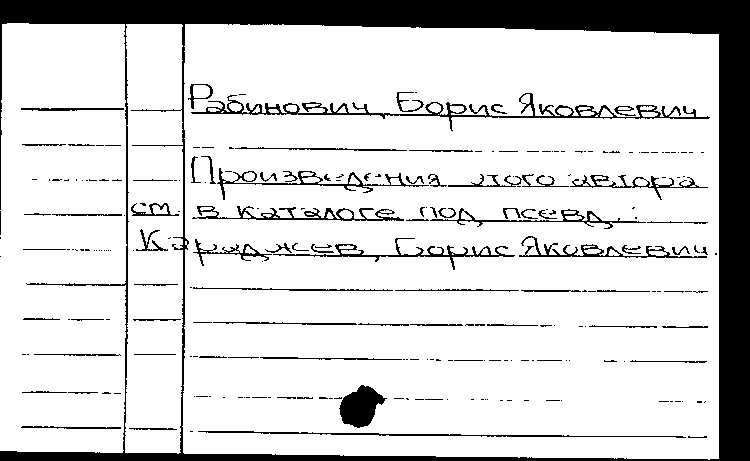 Рабинович, Борис Яковлевич
Произведения этого автора
см. в каталоге под псевд.:
Караджев, Борис Яковлевич.